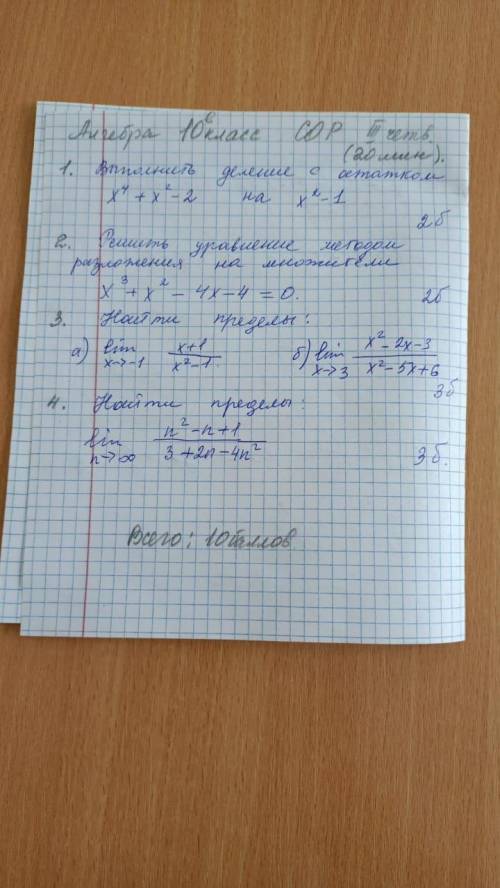 Алгебра 10 е класс СОР III четв.
(20 мин).
1. Выполнить деление с остатком
x⁴ + x² - 2 на x² - 1
2б
2. Решить уравнение методом
разложения на множители
x³ + x² - 4x - 4 = 0. 2б
3. Найти пределы:
а) lim x→-1 (x+1)/(x²-1) б) lim x→3 (x²-2x-3)/(x²-5x+6)
3б
4. Найти пределы:
lim n→∞ (n²-n+1)/(3+2n-4n²) 3б.
Всего: 10баллов